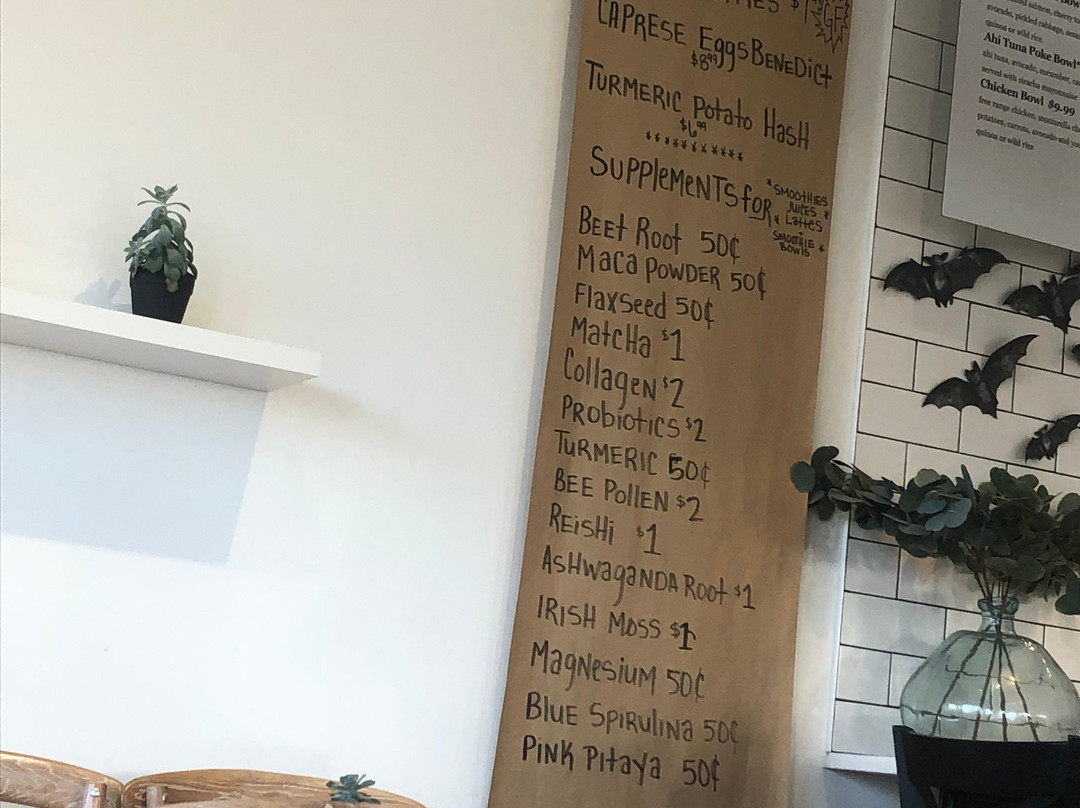 GF
CAPRESE EggsBENEDict
$8⁹⁹
TURMERIC Potato HasH
$6⁹⁹
**********
SUPPleMeNTS foR
*SMOOTHIES
JUICES *
* Lattes
SMOOTHIE *
BOWLS
BEEt Root 50¢
Maca POWDER 50¢
Flaxseed 50¢
MatcHa $1
CollageN $2
PRObiotics $2
TURMERIC 50¢
BEE PolleN $2
REisHi $1
ASHwagaNDA Root $1
IRISH MOSS $1
MagNesiUM 50¢
BlUE SPIRUliNa 50¢
PiNK Pitaya 50¢
salmon, cherry
avocado, pickled cabbage,
quinoa or wild rice
Ahi Tuna Poke Bowl*
ahi tuna, avocado, cucumber,
served with siracha mayonnaise
Chicken Bowl $9.99
free range chicken, mozzarella
potatoes, carrots, avocado and
quinoa or wild rice